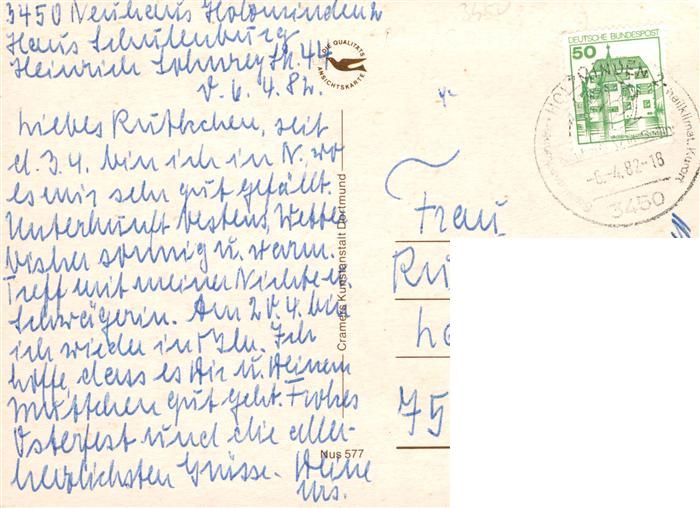 3450 Neuhaus Holzminden 2
Haus Schulenburg
Heinrich Sohnrey Str. 44
d. 6.4.82.
Liebes Ruthchen, seit
d. 3.4. bin ich in N., wo
es mir sehr gut gefällt.
Unterkunft bestens, Wetter
bisher sonnig u. warm.
Treff mit meiner Nichte u.
Schwägerin. Am 20.4. bin
ich wieder in Bln. Ich
hoffe, dass es Dir u. Deinem
Muttchen gut geht. Frohes
Osterfest und die aller-
herzlichsten Grüsse. Deine
Urs.
DIE QUALITÄTS
ANSICHTSKARTE
Cramers Kunstanstalt Dortmund
Nus 577
3450
DEUTSCHE BUNDESPOST
50
HOLZMINDEN 2
heilklimat. Kurort
-6.-4.82-18
3450
Frau
75